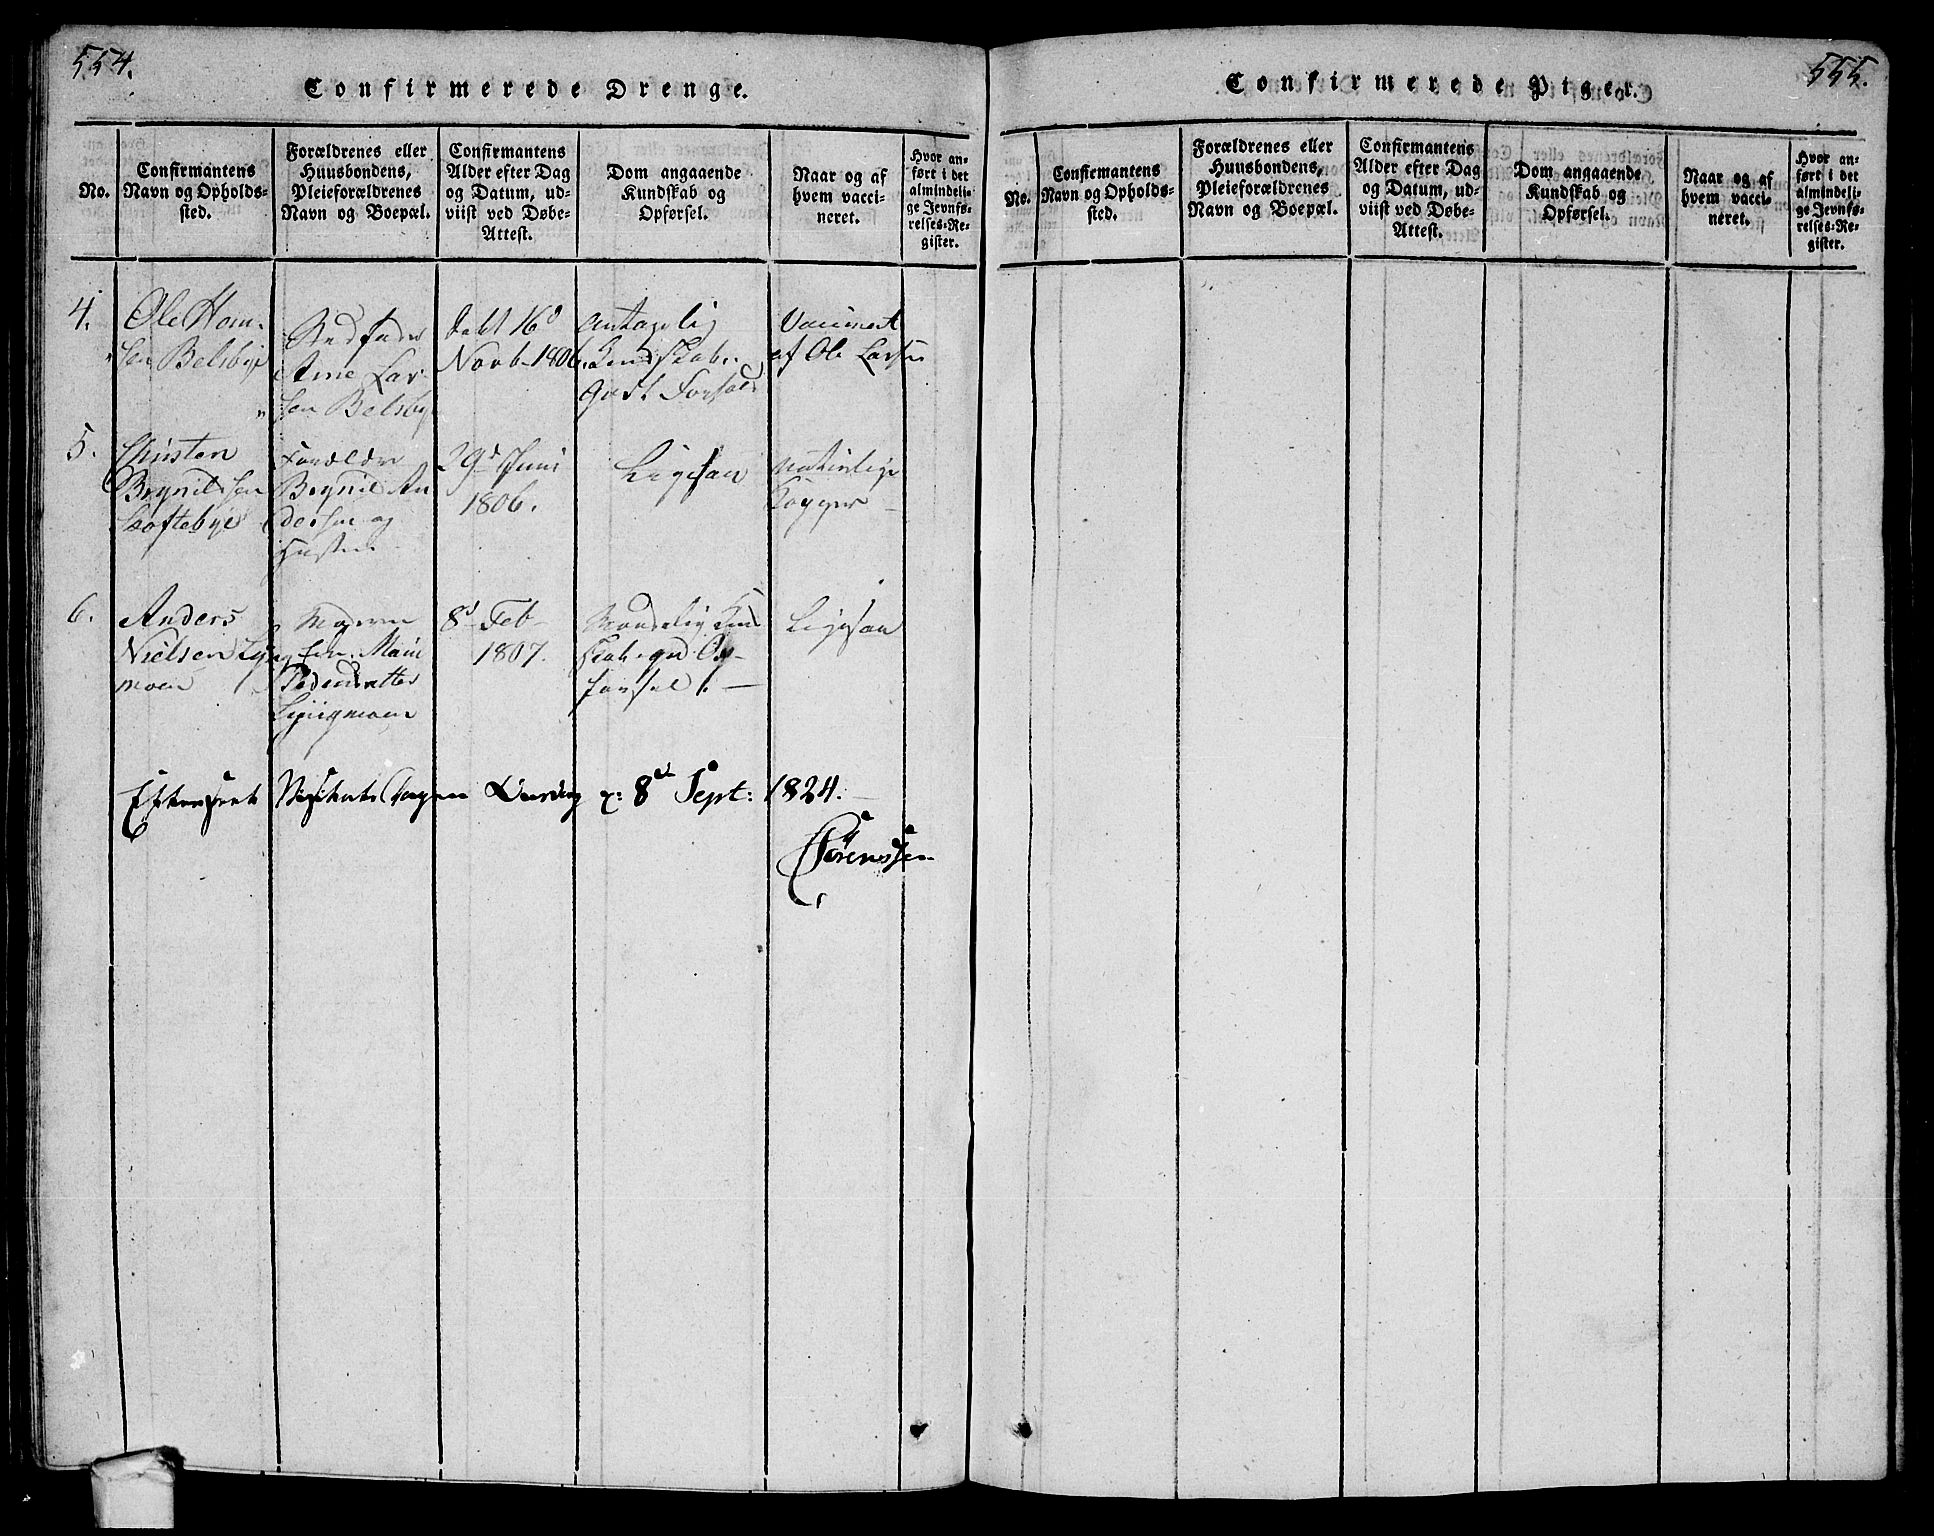 554.
Confirmerede Drenge.
No.
Confirmantens
Navn og Opholds-
sted.
Forældrenes eller
Huusbondens,
Pleieforældrenes
Navn og Boepæl.
Confirmantens
Alder efter Dag
og Datum, ud-
viist ved Døbe-
Attest.
Dom angaaende
Kundskab og
Opførsel.
Naar og af
hvem vacci-
neret.
Hvor an-
ført i det
almindeli-
ge Jevnfø-
relses-Re-
gister.
4.
Ole Han-
sen Belsbye
Stedfader
Arne Lar-
sen Belsbye
døbt 16d
Novb. 1806
Antagelig
Kundskab.
godt Forhold
Vaccineret
af Ole Larsen
5.
Christen
Brynildsen
Loftebye
Forældre
Brynil An
dersen og
Hustru
29d Juni
1806.
Ligesaa
naturlige
Kopper
6.
Anders
Nielsen Lyng
moen
Moderen
Mari
Pedersdatter
Lyngmoen
8d Feb
1807.
Maadelig Kund
skab. god Op-
førsel.
Ligesaa
Efterseet Visitats Dagen Onsdag d: 8de Sept: 1824.
Sørenssen
555.
Confirmerede Piger.
No.
Confirmantens
Navn og Opholds-
sted.
Forældrenes eller
Huusbondens,
Pleieforældrenes
Navn og Boepæl.
Confirmantens
Alder efter Dag
og Datum, ud-
viist ved Døbe-
Attest.
Dom angaaende
Kundskab og
Opførsel.
Naar og af
hvem vacci-
neret.
Hvor an-
ført i det
almindeli-
ge Jevnfø-
relses-Re-
gister.